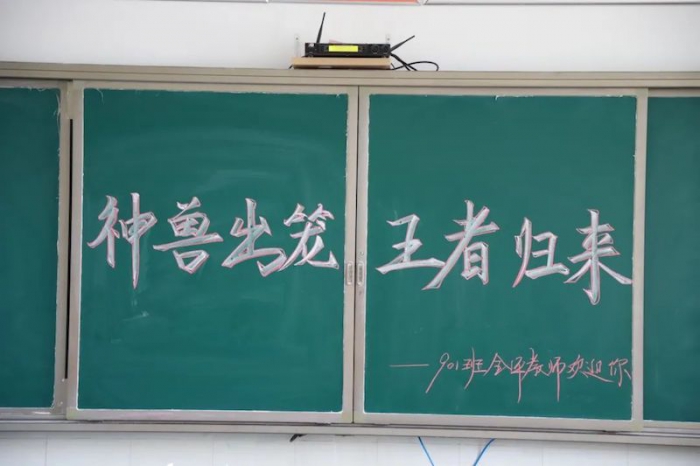 神兽出笼 王者归来
——901班全体教师欢迎你